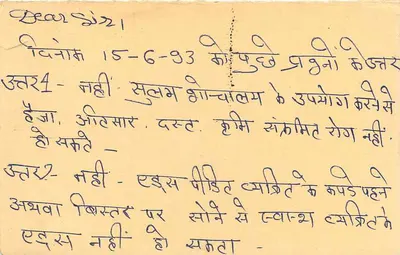 Dear Sir,
दिनांक 15-6-93 को पुछे प्रश्नों के उत्तर
उत्तर1- नहीं. सुलभ शौचालय के उपयोग करने से
हैजा, अतिसार. दस्त. कृमि संक्रमित रोग नहीं.
हो सकते -
उत्तर2- नहीं - एड्स पीडित व्यक्ति के कपडे पहने
अथवा बिस्तर पर सोने से स्वास्थ व्यक्ति के
एड्स नहीं हो सकता -